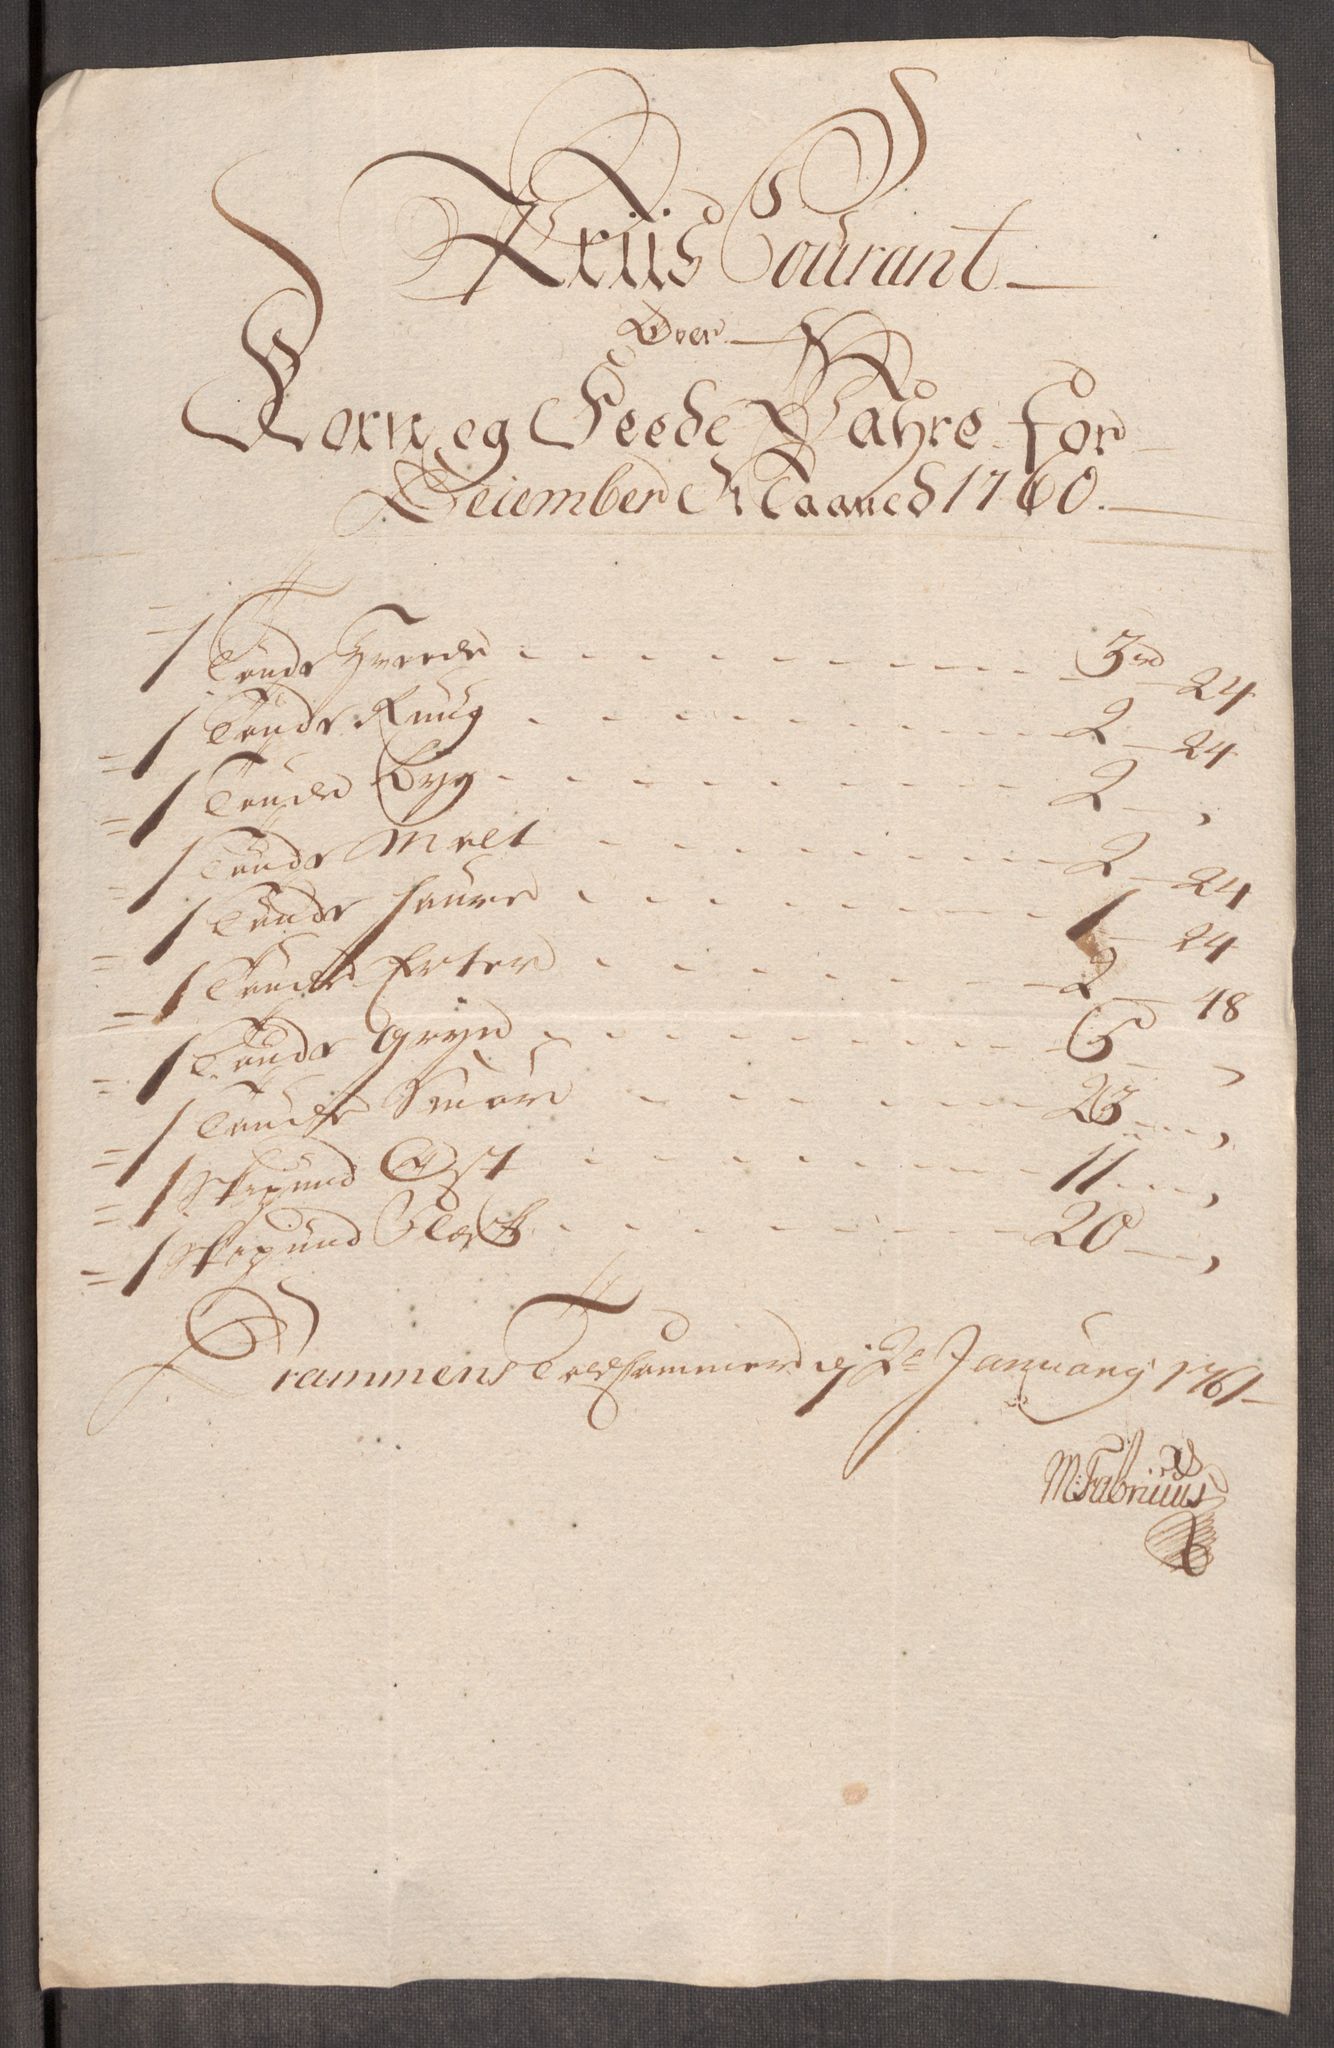 Priis Courant
Over
Korn og Feede Vahre for
December Maaned 1760.
1 Tønde Hvede - - - - - - - - 3 rd 24
1 Tønde Ruug - - - - - - - - 2 - 24
1 Tønde Byg - - - - - - - - 2 - ,
1 Tønde Malt - - - - - - - - 2 - 24
1 Tønde Haure - - - - - - - - 1 - 24
1 Tønde Erter - - - - - - - - 2 - 48
1 Tønde Gryn - - - - - - - - 6 - ,
1 Tønde Smør - - - - - - - - 23 - ,
1 Skipund Ost - - - - - - - - 11 - ,
1 Skipund Flesk - - - - - - - - 20 - ,
Drammens Toldkammer d: 2e January 1761
M: Fabricius